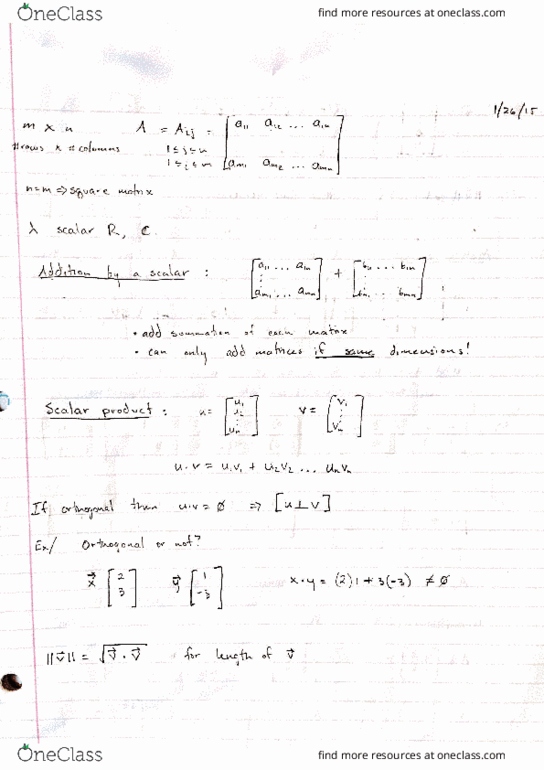 OneClass find more resources at oneclass.com
1/26/15
m x n A = Aij = [a11 a12 ... a1n
#rows x #columns 1≤j≤n
1≤i≤m am1 am2 ... amn]
n=m => square matrix
λ scalar R, C
Addition by a scalar : [a11 ... a1n ⋮ am1 ... amn] + [b11 ... b1n ⋮ bm1 ... bmn]
• add summation of each matrix
• can only add matrices if same dimensions!
Scalar product : u= [u1 u2 ⋮ un] v= [v1 ⋮ vn]
u · v = u1v1 + u2v2 ... unvn
If orthogonal then u·v = ∅ => [u⊥v]
Ex/ Orthogonal or not?
x⃗ [2 3] y⃗ [1 -3] x·y = (2)1 + 3(-3) ≠ ∅
||v⃗|| = √v⃗ · v⃗ for length of v⃗
OneClass find more resources at oneclass.com